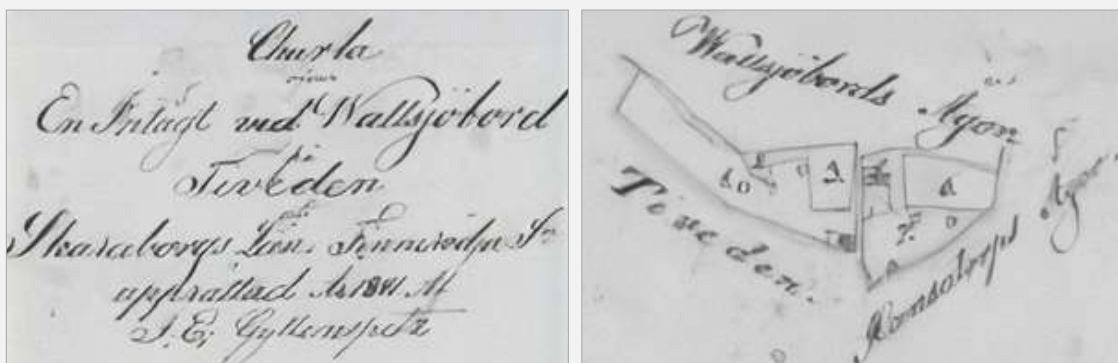 Charta
öfwer
En Intagt vid Wallsjöbord
på
Tiveden
Skaraborgs Län.
upprättad År 1841 Af
J. E. Gyllenspetz
Wallsjöbords Ägor
Tiveden.
Ramsatorps Ägor
A
A